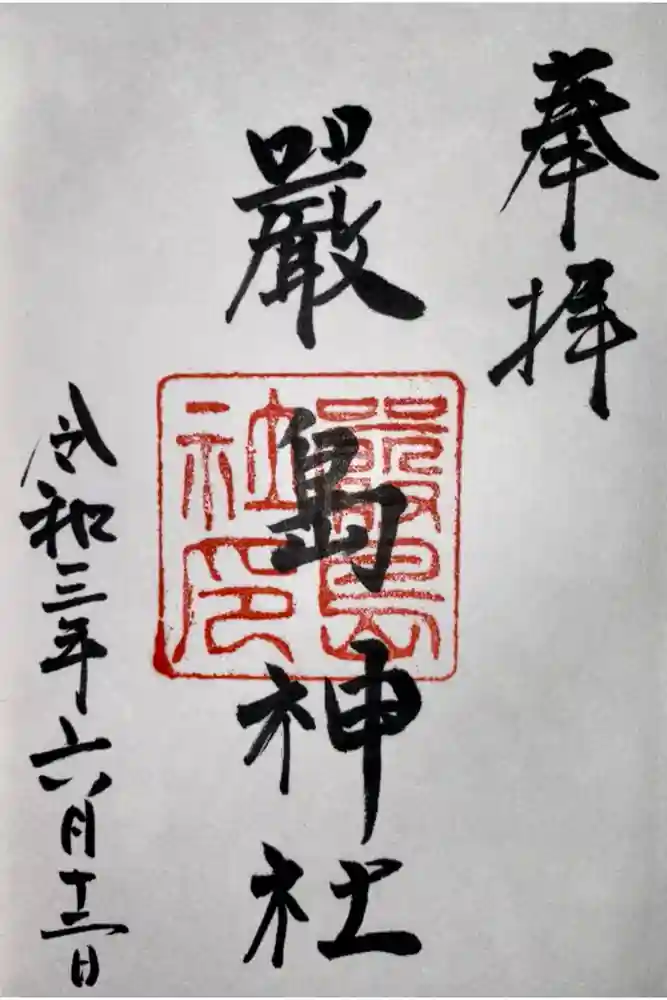 奉拝
嚴島神社
嚴島
社印
令和三年六月十三日